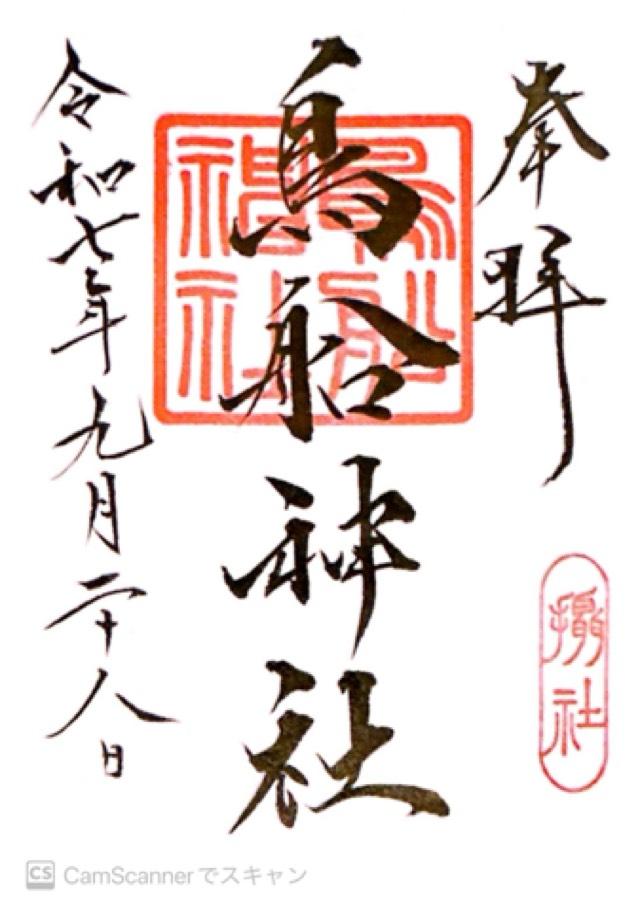 奉拝
攝社
鳥船神社
鳥船神社
令和七年九月二十八日
CS CamScannerでスキャン